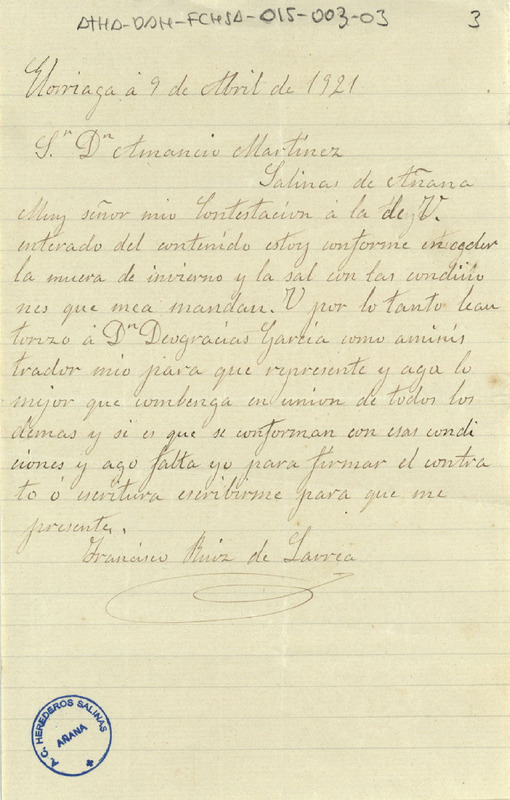 ATHA-DAH-FCHSA-015-003-03
3
Elorriaga á 9 de Abril de 1921
S.n Dn Amancio Martínez
Salinas de Añana
Muy señor mio Contestación á la de V.
enterado del contenido estoy conforme en ceder
la muera de invierno y la sal con las condiio
nes que mea mandan. V por lo tanto leau
torizo á Dn Deogracias García como aminis
trador mio para que represente y aga lo
mejor que combenga en union de todos los
demas y si es que se conforman con esas condi
ciones y ago falta yo para firmar el contra
to ó escritura escribirme para que me
presente.
Francisco Ruiz de Larrea
A. C. HEREDEROS SALINAS
AÑANA